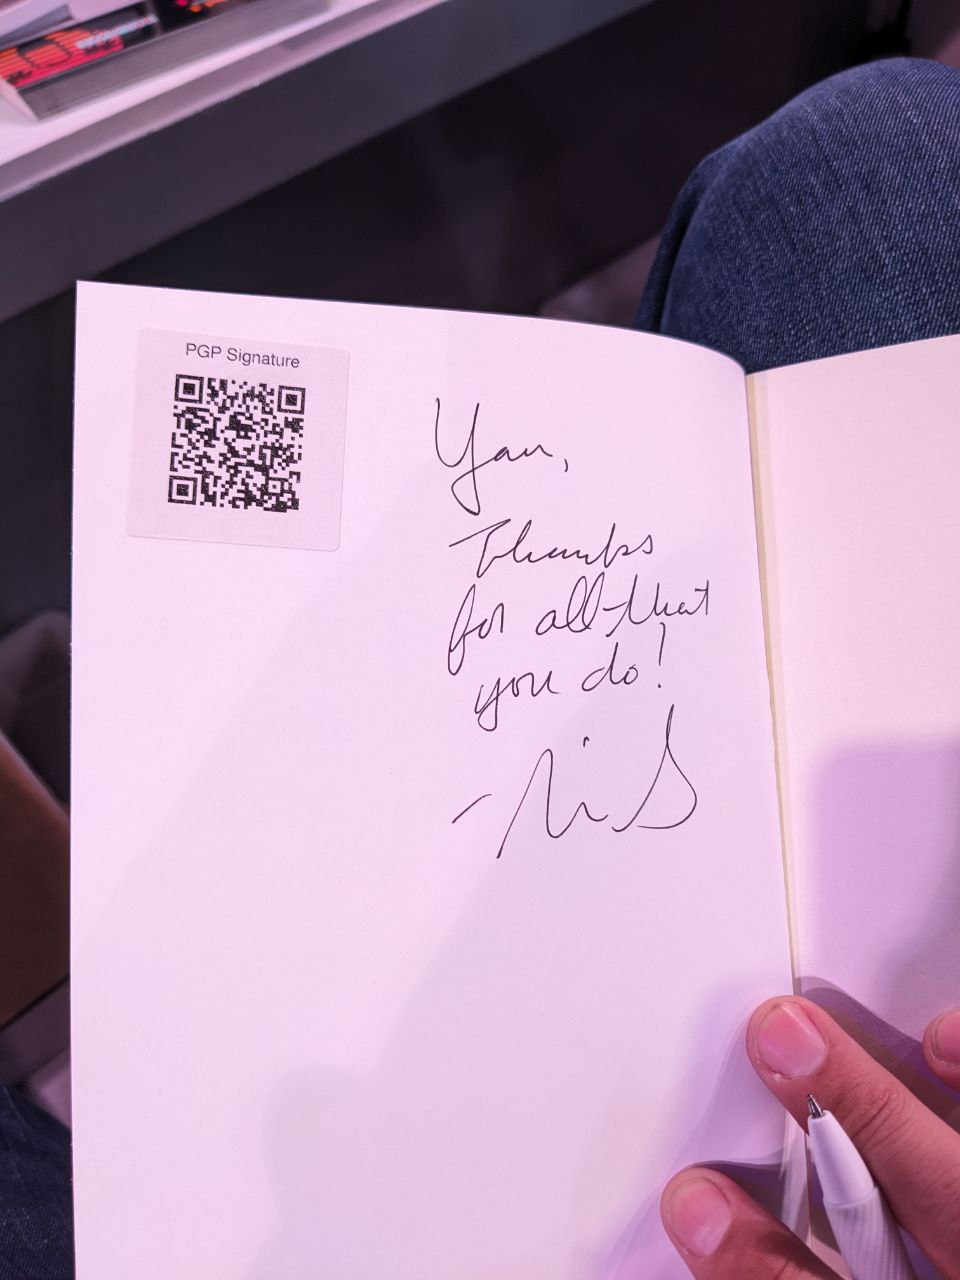 PGP Signature
Yan,
Thanks
for all that
you do!